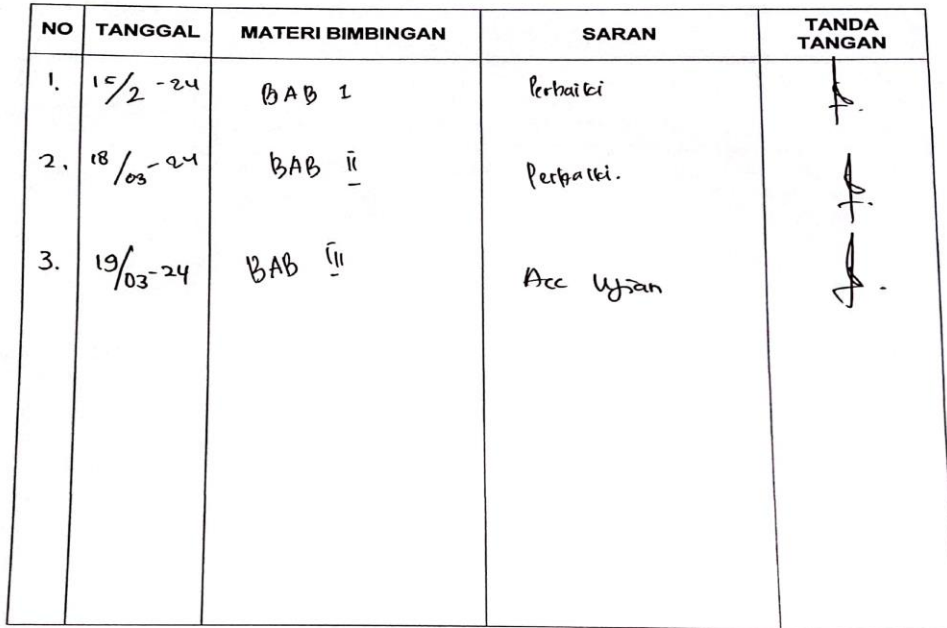 NO TANGGAL MATERI BIMBINGAN SARAN TANDA TANGAN
1. 15/2-24 BAB I Perbaiki
2. 18/03-24 BAB II Perbaiki.
3. 19/03-24 BAB III Acc Ujian